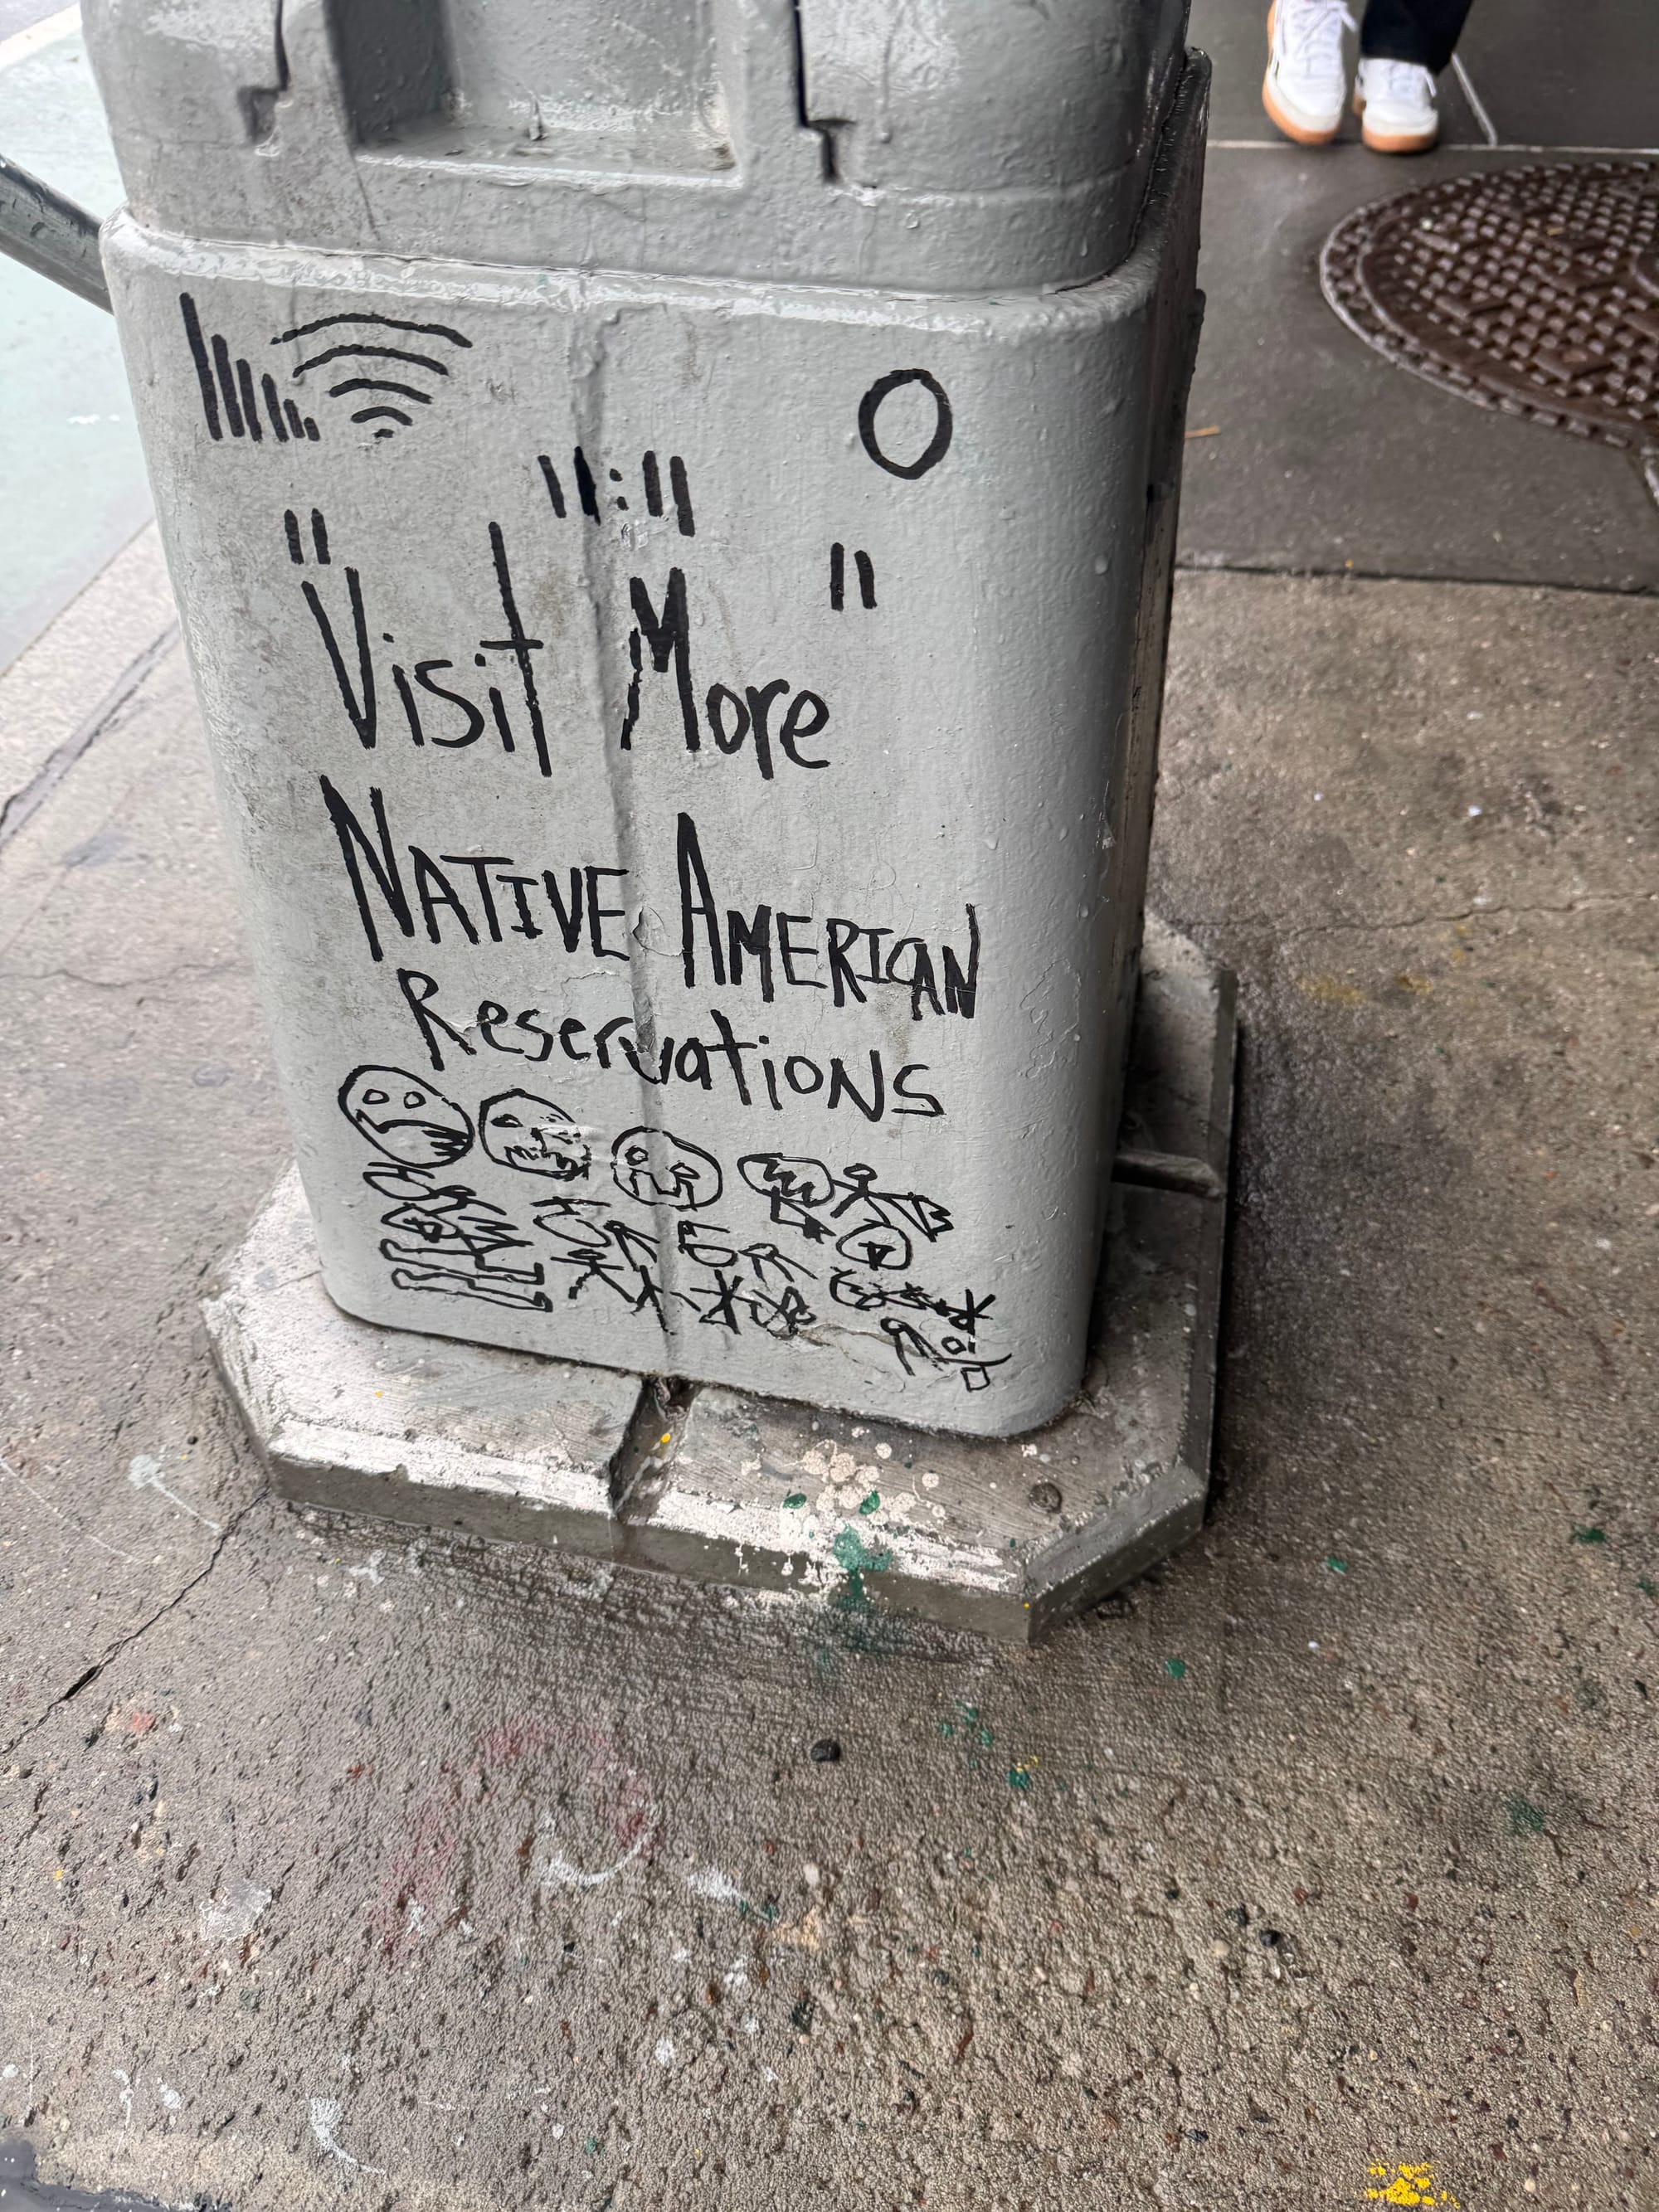 11:11
"Visit More"
NATIVE AMERICAN
Reservations